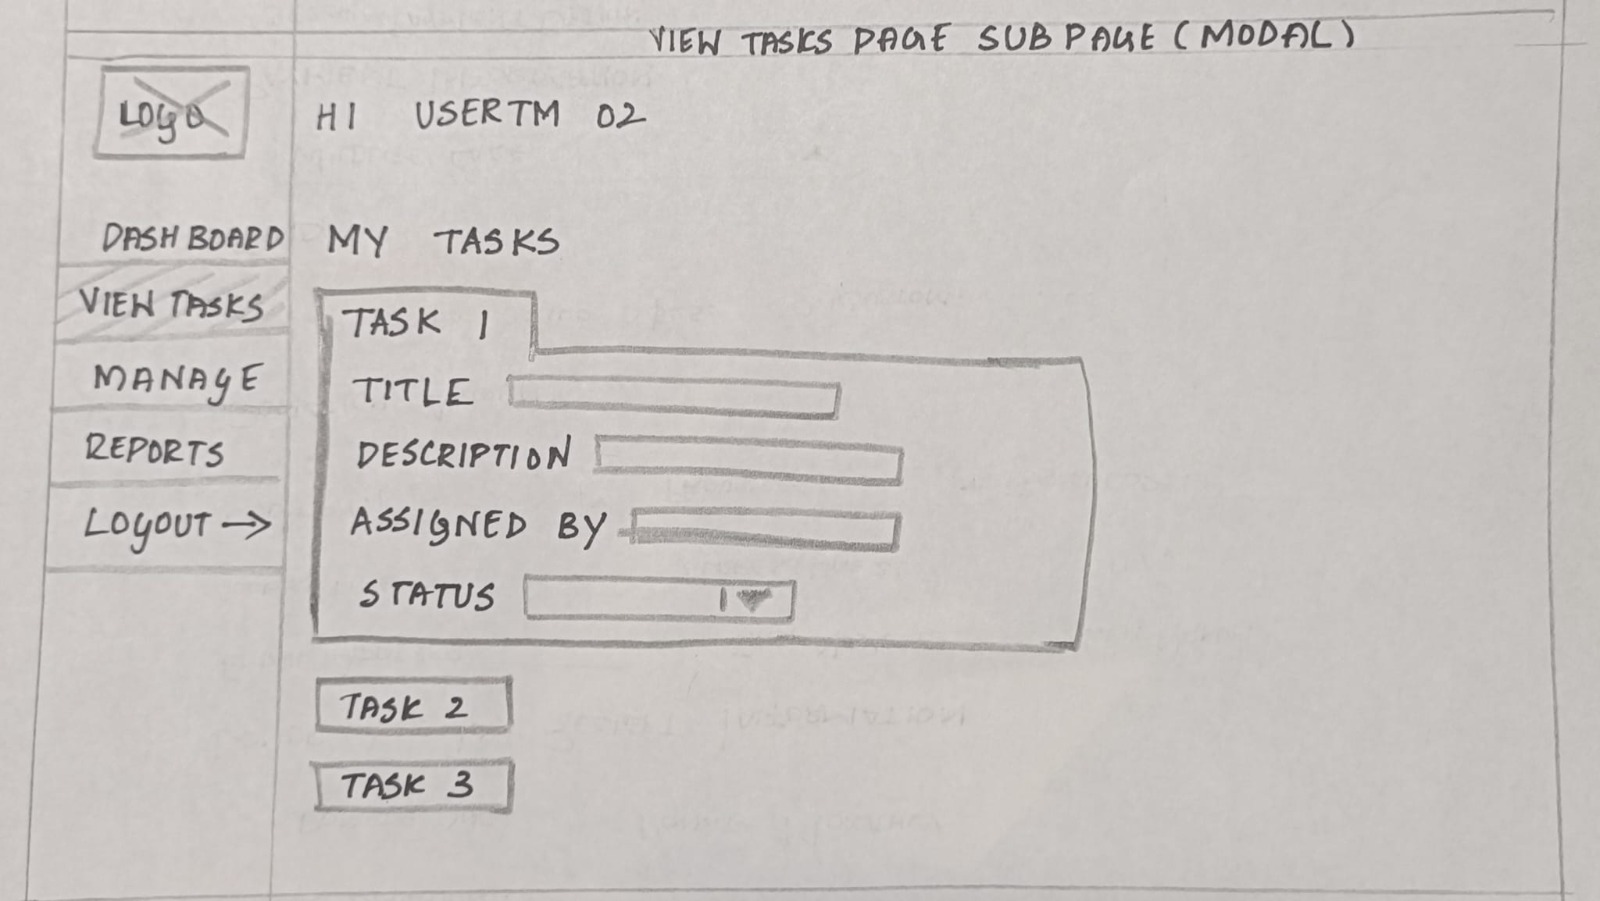 VIEW TASKS PAGE SUB PAGE (MODAL)
LOGO
HI USERTM 02
DASHBOARD
VIEW TASKS
MANAGE
REPORTS
LOGOUT →
MY TASKS
TASK 1
TITLE
DESCRIPTION
ASSIGNED BY
STATUS
TASK 2
TASK 3